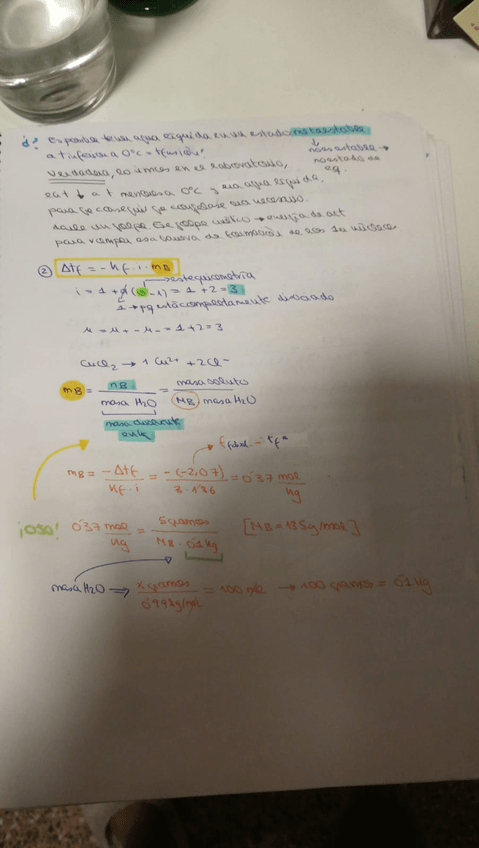 d? Es posible tener agua líquida en un estado metaestable
a t inferior a 0°C = tfusión?
no es estable →
no estado de
eq.
Verdadera, lo vimos en el laboratorio,
a t menores a 0°C y era agua líquida,
para que
dale un golpe. Ese golpe → energía de act
para romper esa barrera de formación de
② Δtf = -Kf · i · mB
→ estequiometría
i = 1 + α(ν - 1) = 1 + 2 = 3
1 → pq está completamente disociado
ν = ν+ + ν- = 1 + 2 = 3
CuCl2 → 1 Cu2+ + 2Cl-
mB = nB / masa H2O = masa soluto / MB · masa H2O
masa disolvente
mB = -Δtf / Kf · i = -(-2,07) / 3 · 1'86 = 0'37 mol/kg
¡OJO! 0'37 mol/kg = 5 gramos / MB · 0'1 kg [MB = 135 g/mol]
masa H2O ⟹ x gramos / 0'998 g/ml = 100 ml → 100 gramos = 0'1 kg